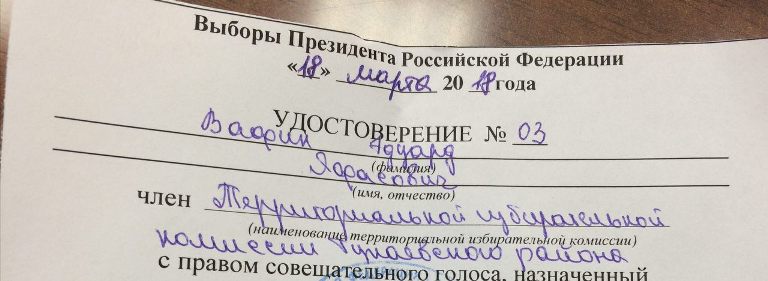 Выборы Президента Российской Федерации
«18» марта 2018 года
УДОСТОВЕРЕНИЕ № 03
Вафин Эдуард
(фамилия)
Яфасович
(имя, отчество)
член Территориальной избирательной
(наименование территориальной избирательной комиссии)
комиссии Тукаевского района
с правом совещательного голоса, назначенный